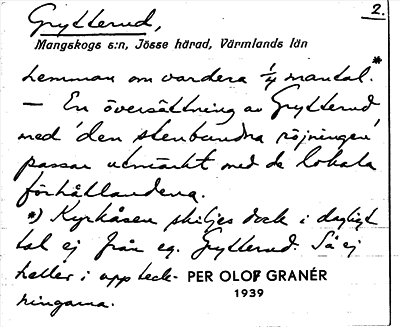 Grytterud, 2.
Mangskogs s:n, Jösse härad, Värmlands län
hemman om vardera 1/4 mantal.*
– En översättning av Grytterud
med 'den stenbundna röjningen'
passar utmärkt med de lokala
förhållandena.
*) Kyrkåsen skiljes dock i dagligt
tal ej från eg. Grytterud. Så ej
heller i uppteck-
ningarna.
PER OLOF GRANÉR
1939